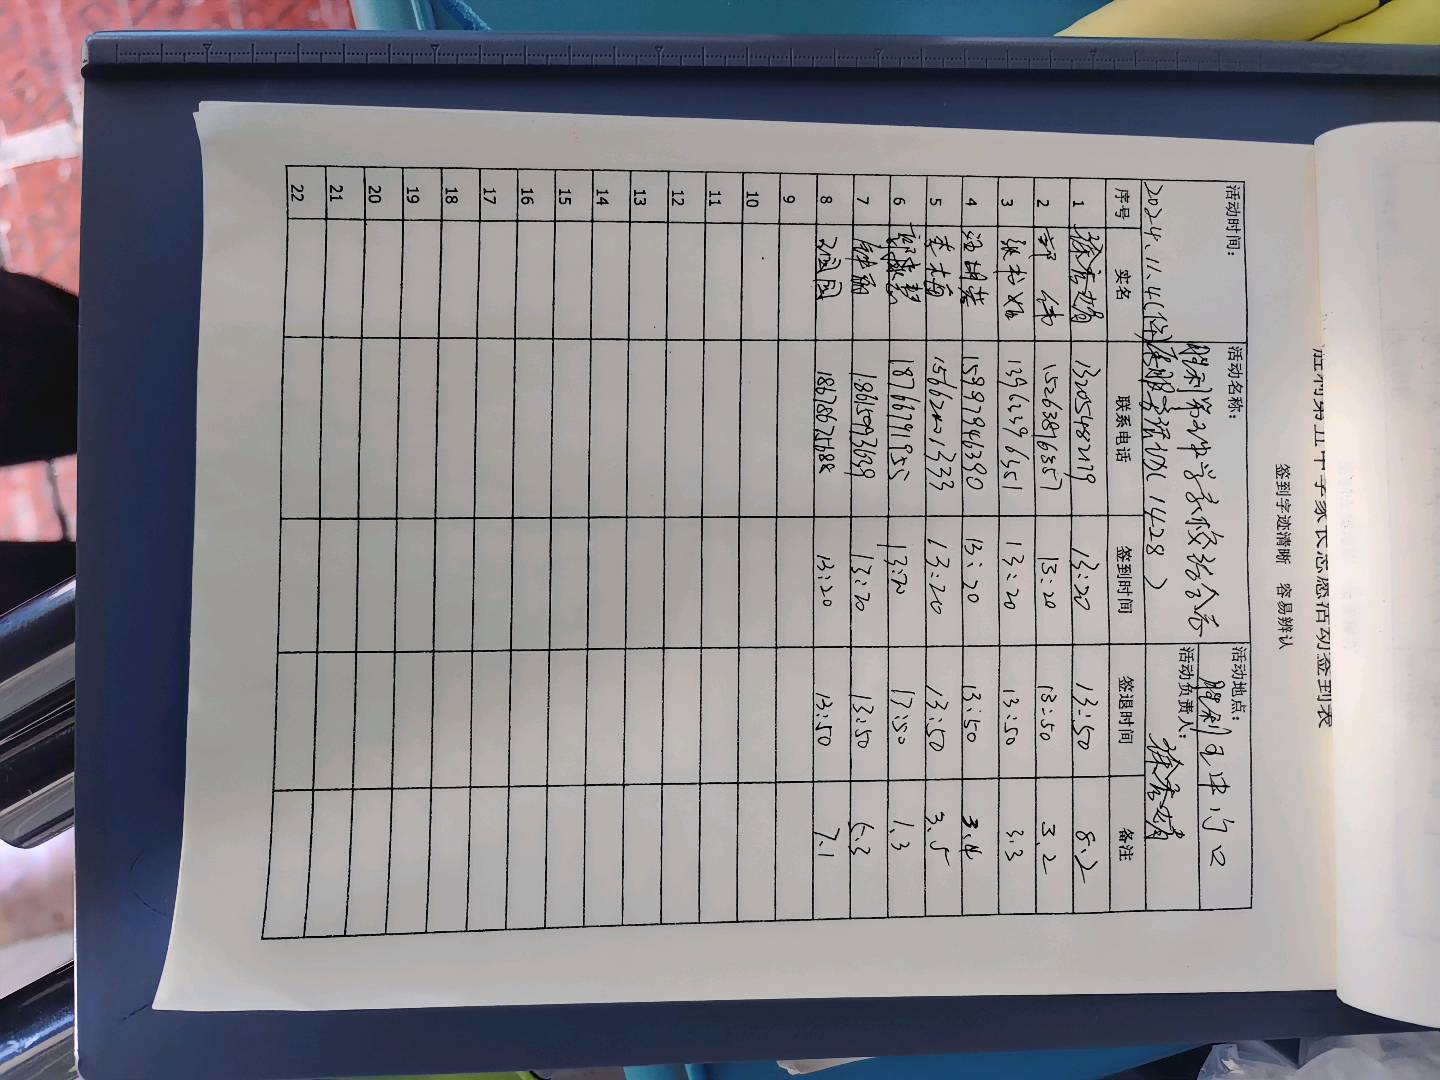 胜利第五中学家长志愿活动签到表
签到字迹清晰 容易辨认
活动时间: 活动名称: 胜利第五中学家校综合委 活动地点: 胜利五中门口
2024.11.4(午) 1428) 活动负责人: 徐秀娟
序号 实名 联系电话 签到时间 签退时间 备注
1 徐秀娟 13205482179 13:20 13:50 8.2
2 郭伟 15263876357 13:20 13:50 3.2
3 13963396351 13:20 13:50 3.3
4 15997946390 13:20 13:50 3.4
5 李木梅 13:20 13:50 3.5
6 18766791955 13:20 17:50 1.3
7 钟丽 18615993639 13:20 13:50 6.3
8 18678675688 13:20 13:50 7.1
9
10
11
12
13
14
15
16
17
18
19
20
21
22